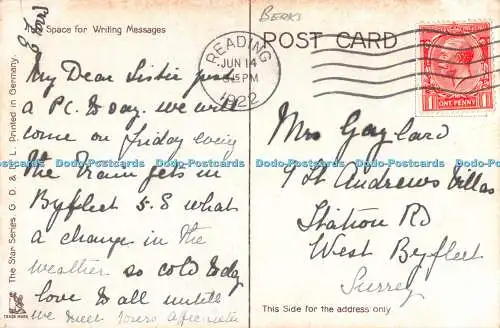 BERKS
The Space for Writing Messages
POST CARD
READING
JUN 14
5.15 PM
1922
ONE PENNY
My Dear Sister just
a P.C. to day. we will
come on friday evening
the train gets in
Byfleet 5.8 what
a change in the
weather so cold today
love to all untill
we meet yours affectionate
Mrs Gaylard
9 St Andrews Villas
Station Rd
West Byfleet
Surrey
The Star Series G. D. & D. L. Printed in Germany.
TRADE MARK
This Side for the address only
Dodo-Postcards Dodo-Postcards Dodo-Postcards Dodo-Postcards Dodo-Postcards Dodo-Postcards